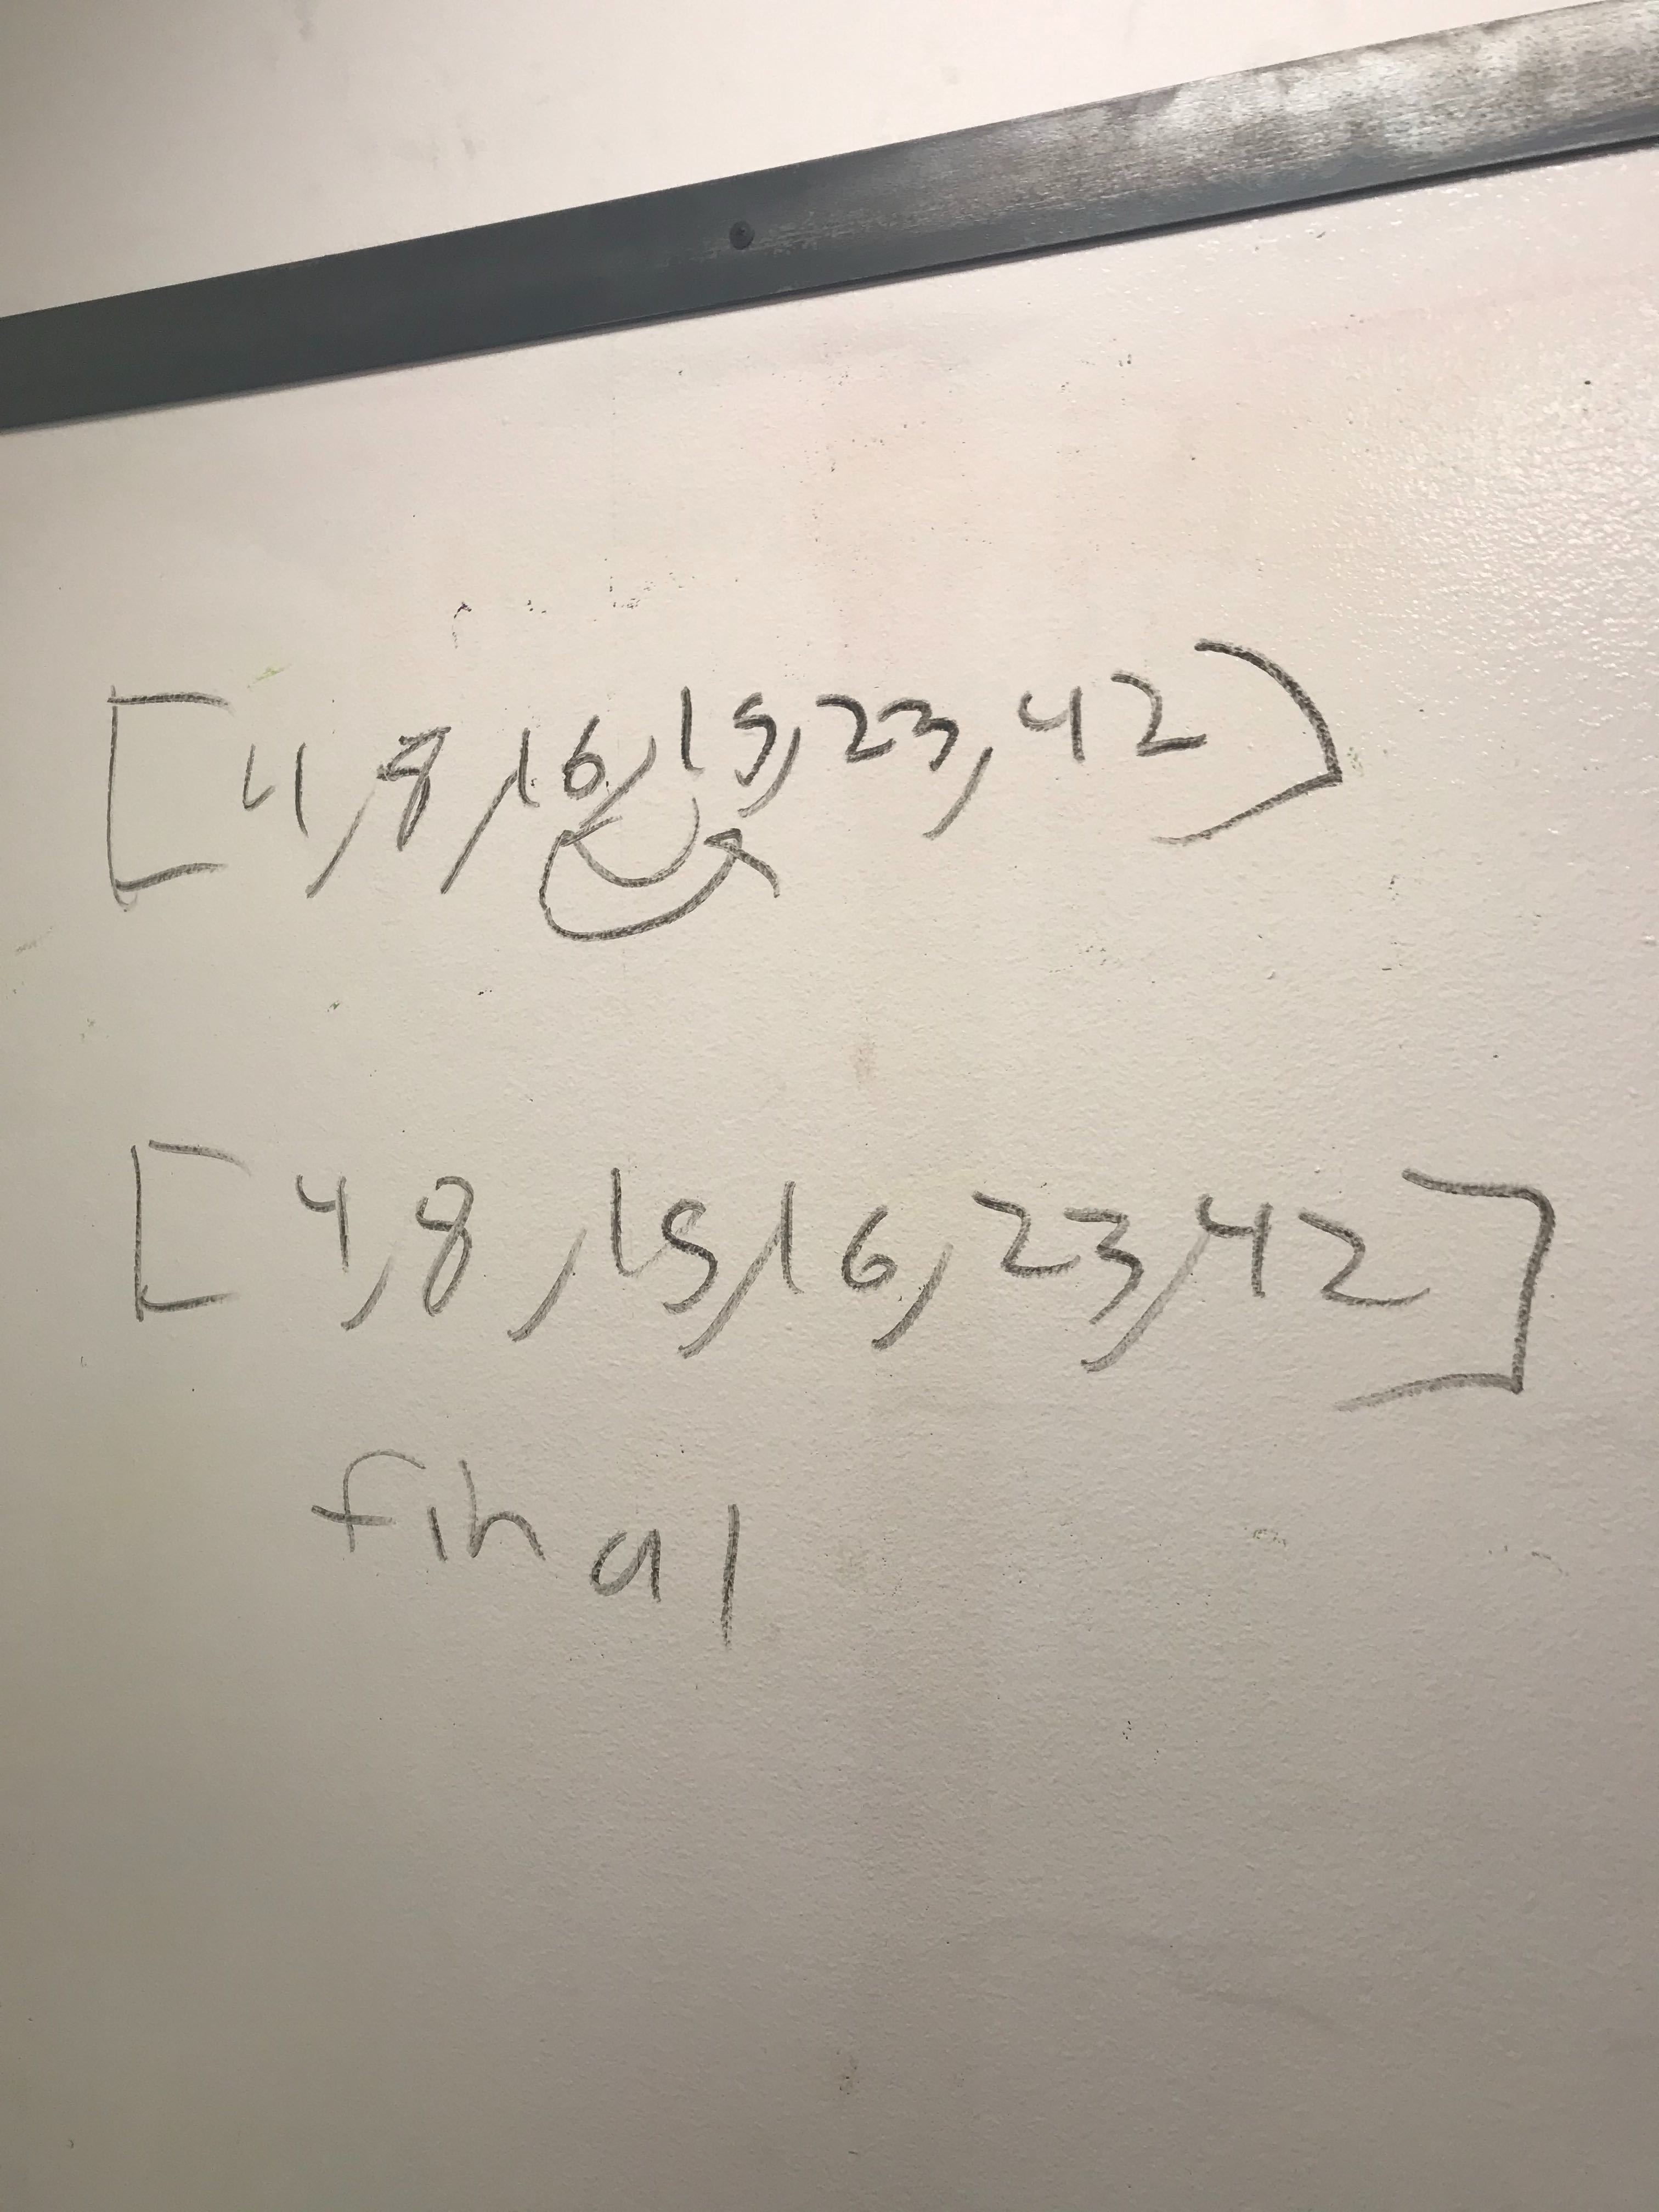 [4,8,16,15,23,42]
[4,8,15,16,23,42]
final